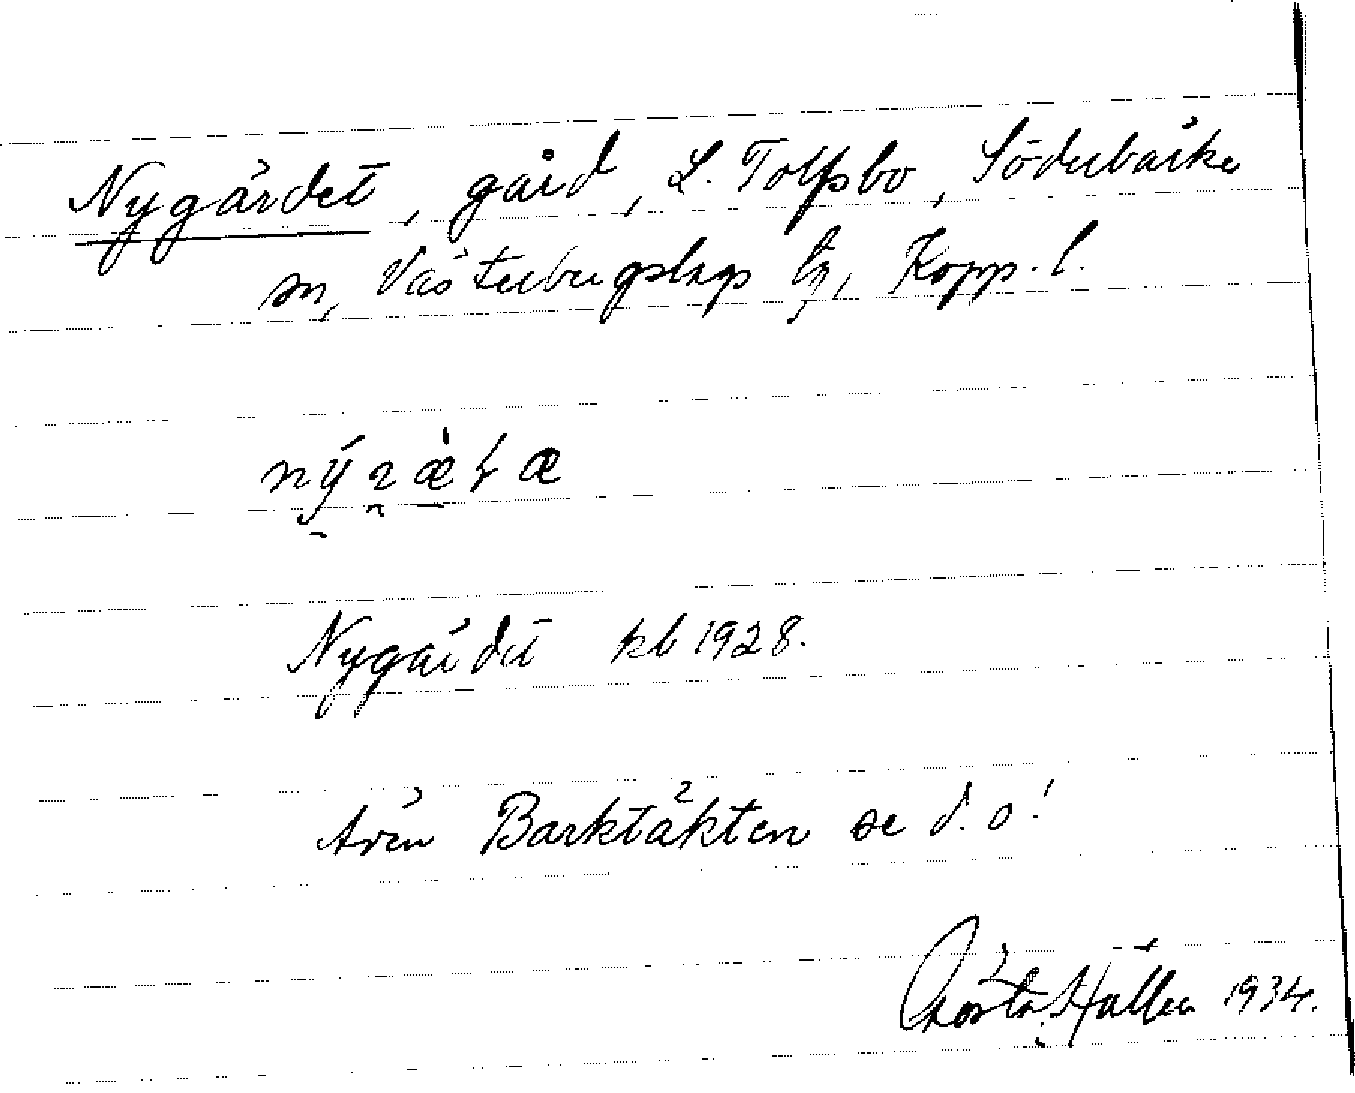 Nygärdet, gård, L. Tolfsbo, Söderbärke
sn, Västerbergslags tg, Kopp. l.
Nygärdet kb 1928.
även Barktäkten se d. o!
Gösta Hallen 1934.